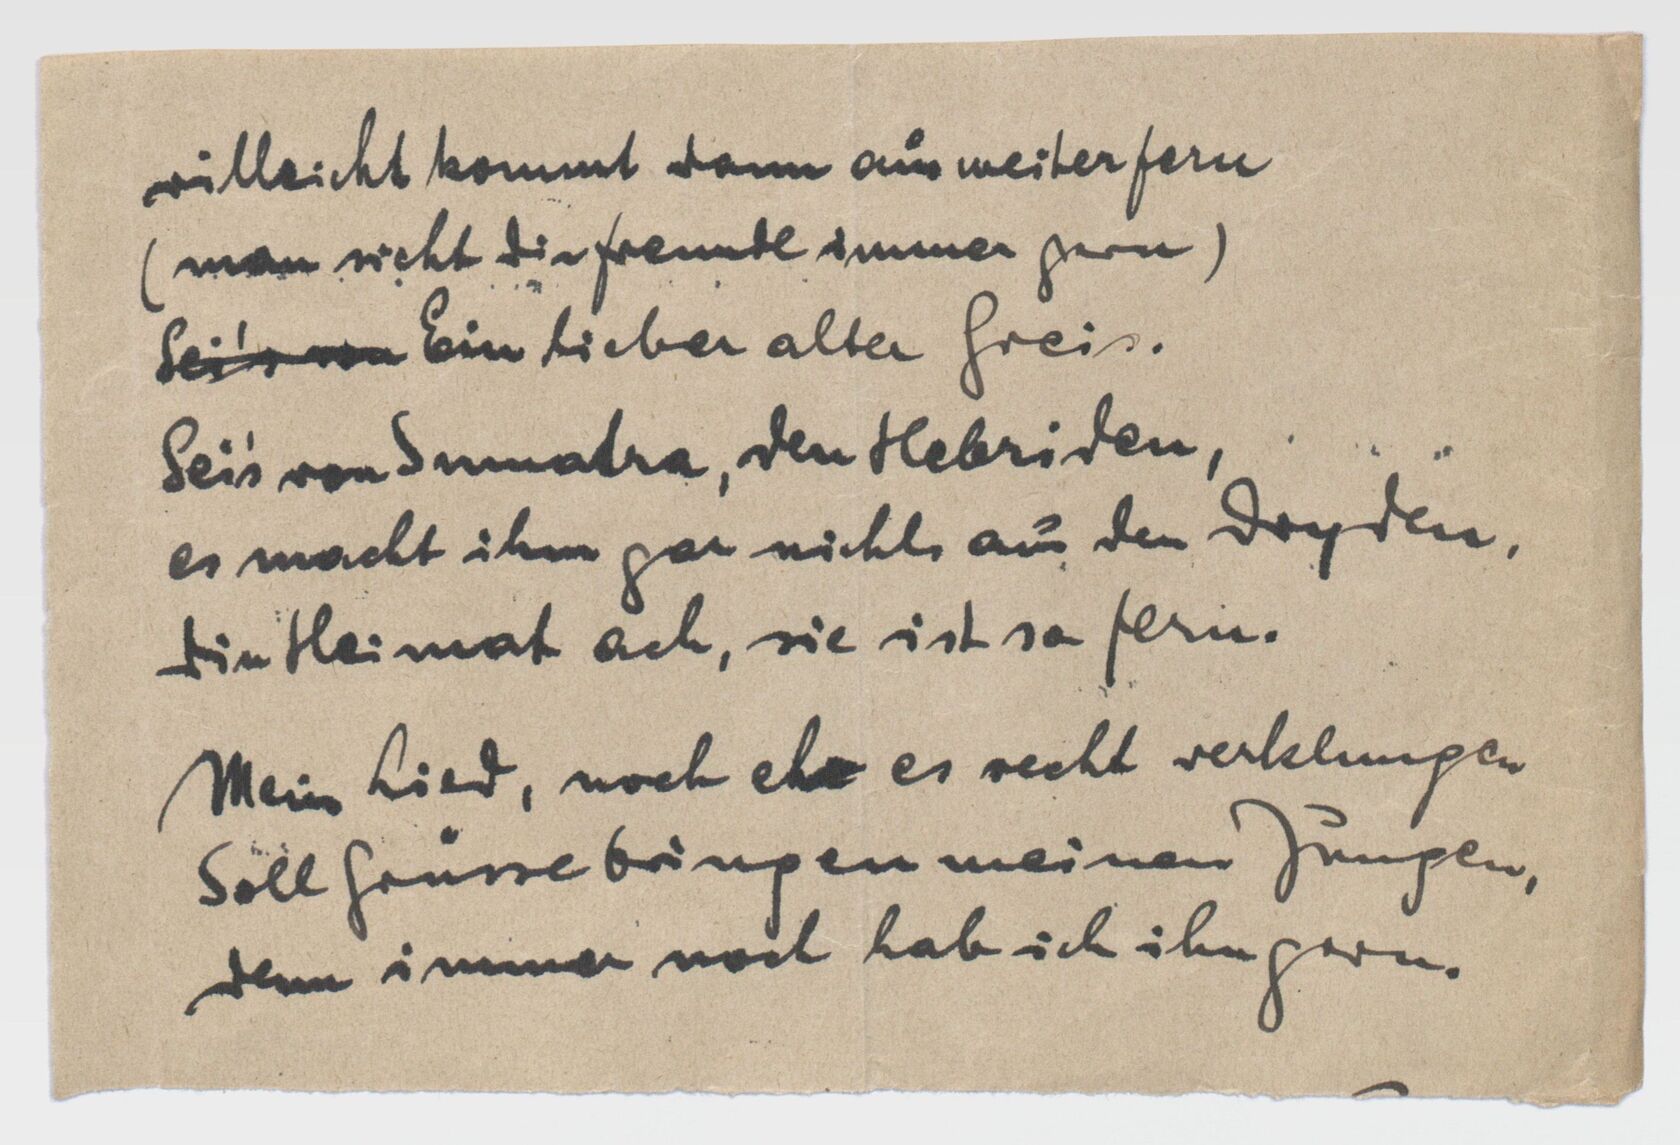 villeicht kommt dann aus weiter fern
(man sieht die freunde immer gern)
Sei's von Ein lieber alter Greis.
Sei's von Sumatra, den Hebriden,
es macht ihm gar nichts aus den Dryden,
die Heimat ach, sie ist so fern.
Mein Lied, noch ehe es recht verklungen
Soll Grüsse bringen meinen Jungen,
denn immer noch hab ich ihn gern.